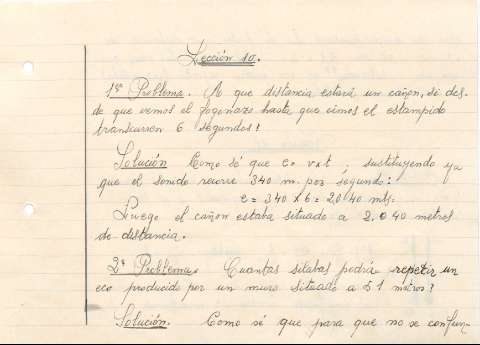 Lección 10.
1º Problema. A que distancia estará un cañon, si des-
de que vemos el fogonazo hasta que oimos el estampido
transcurren 6 segundos?
Solución Como sé que e = v x t ; sustituyendo ya
que el sonido recorre 340 m. por segundo:
e = 340 x 6 = 2040 mts.
Luego el cañon estaba situado a 2.040 metros
de distancia.
2º Problema. Cuantas silabas podrá repetir un
eco producido por un muro situado a 51 metros?
Solución. Como sé que para que no se confun-